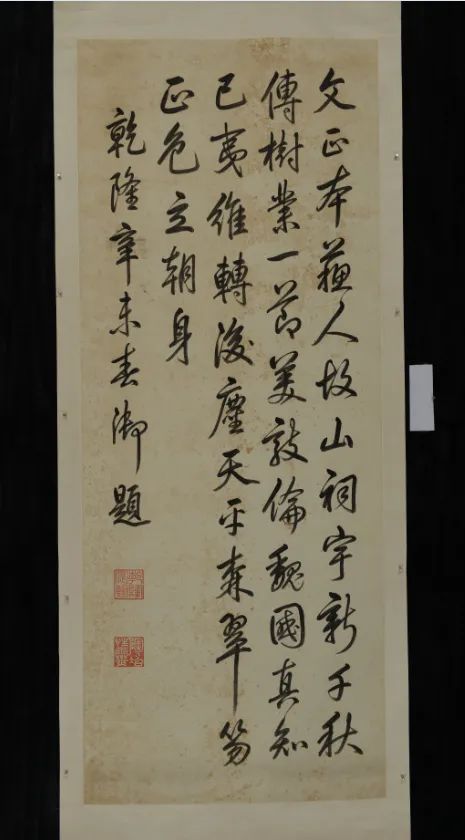 文正本蘓人故山祠宇新千秋
傳樹業一節美敦倫魏國真知
已夷維轉後塵天平森翠笏
正色立朝身
乾隆辛未春御題